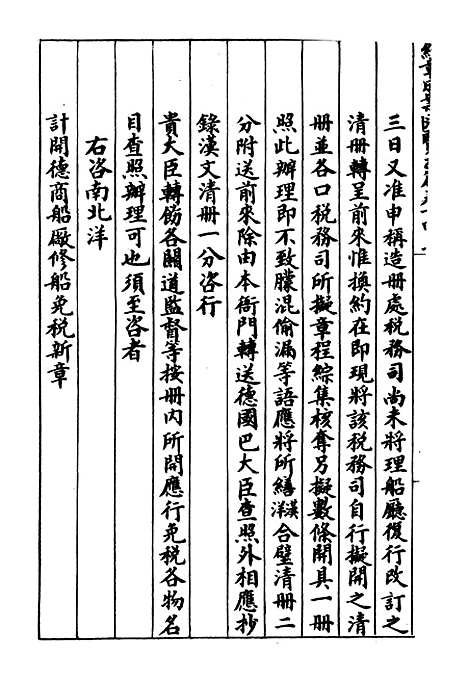 三日又准申稱造册處税務司尚未將理船廳復行改訂之
清册轉呈前來惟換約在即現將該税務司自行擬開之清
册並各口税務司所擬章程綜集核奪另擬數條開具一册
照此辦理即不致朦混偷漏等語應將所繕漢洋合璧清册二
分附送前來除由本衙門轉送德國巴大臣查照外相應抄
錄漢文清册一分咨行
貴大臣轉飭各關道監督等按册內所開應行免税各物名
目查照辦理可也須至咨者
右咨南北洋
計開德商船廠修船免税新章